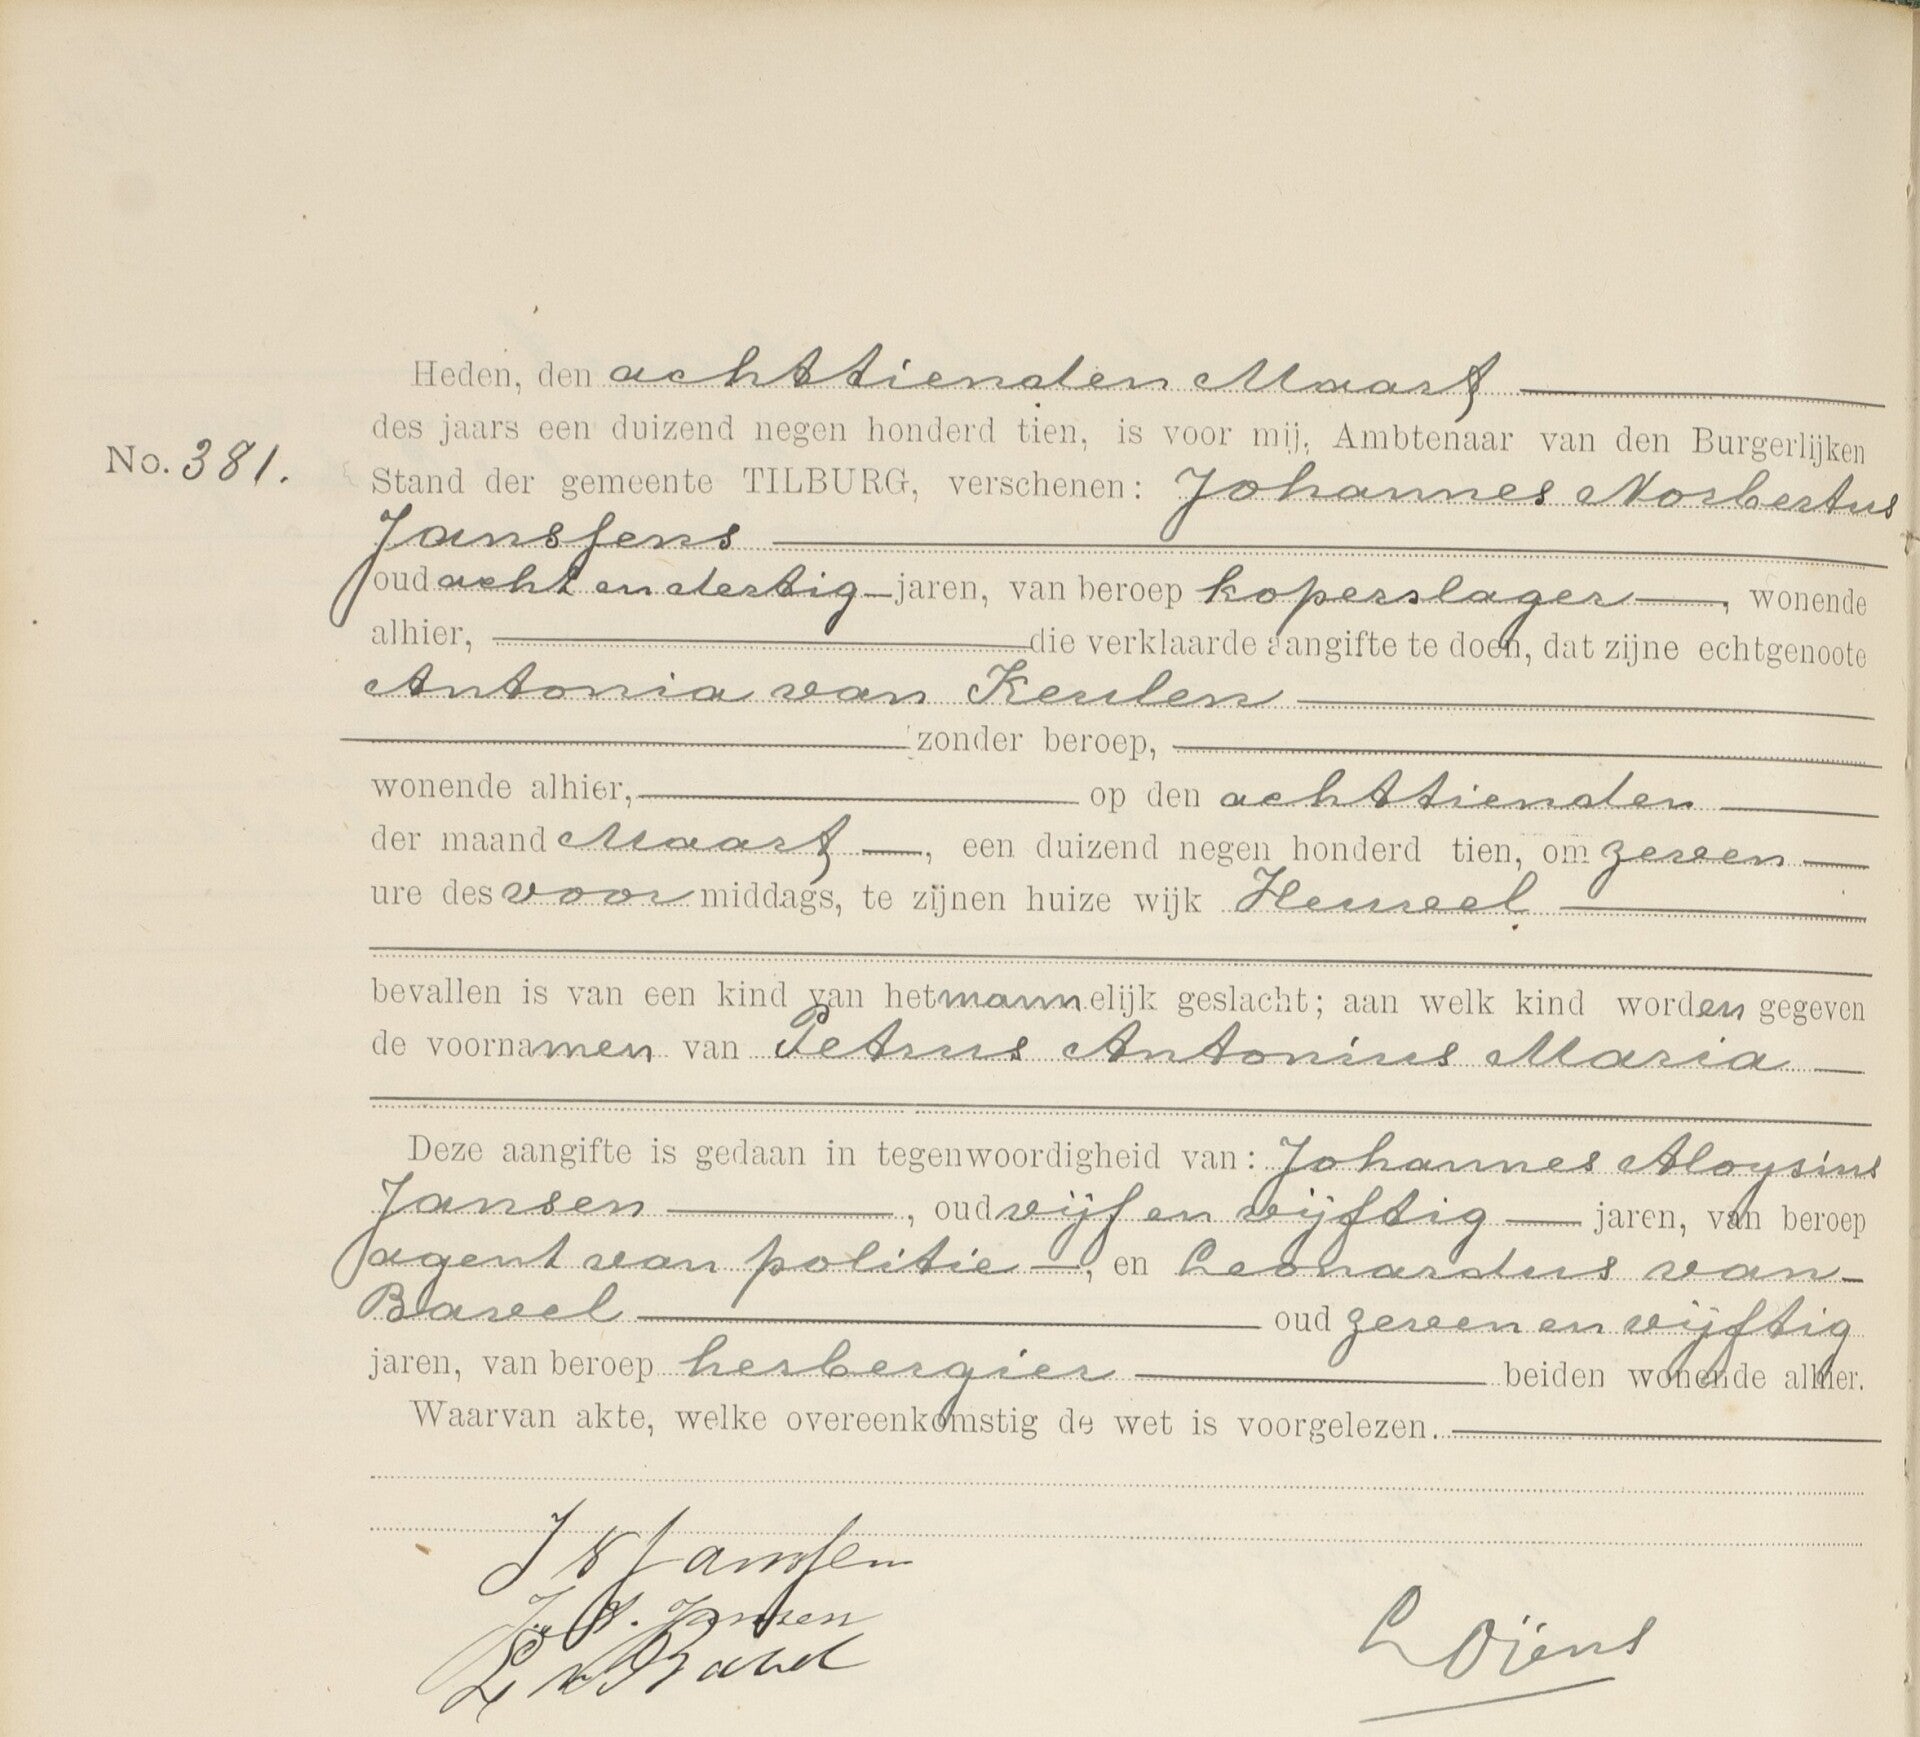 Heden, den achttienden Maart
des jaars een duizend negen honderd tien, is voor mij, Ambtenaar van den Burgerlijken
No. 381.
Stand der gemeente TILBURG, verschenen: Johannes Norbertus
Janssens
oud acht en dertig jaren, van beroep koperslager, wonende
alhier, die verklaarde aangifte te doen, dat zijne echtgenoote
Antonia van Keulen
zonder beroep,
wonende alhier, op den achttienden
der maand Maart, een duizend negen honderd tien, om zeven
ure des voormiddags, te zijnen huize wijk Heuvel
bevallen is van een kind van het mannelijk geslacht; aan welk kind worden gegeven
de voornamen van Petrus Antonius Maria
Deze aangifte is gedaan in tegenwoordigheid van: Johannes Aloysius
Jansen, oud vijf en vijftig jaren, van beroep
agent van politie, en Leonardus van
Bavel oud zeven en vijftig
jaren, van beroep herbergier beiden wonende alhier.
Waarvan akte, welke overeenkomstig de wet is voorgelezen.
J N Janssen
J. A. Jansen
L v Bavel